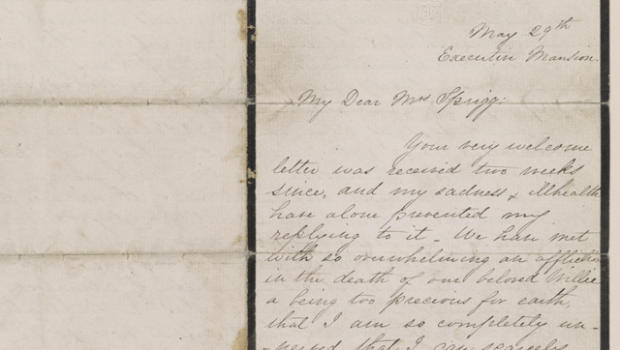 May 29th
Executive Mansion.
My Dear Mrs Sprigg:
Your very welcome
letter was received two weeks
since, and my sadness & ill health
have alone prevented my
replying to it _ We have met
with so overwhelming an affliction
in the death of our beloved Willie
a being too precious for earth,
that I am so completely un-
-nerved that I can scarcely